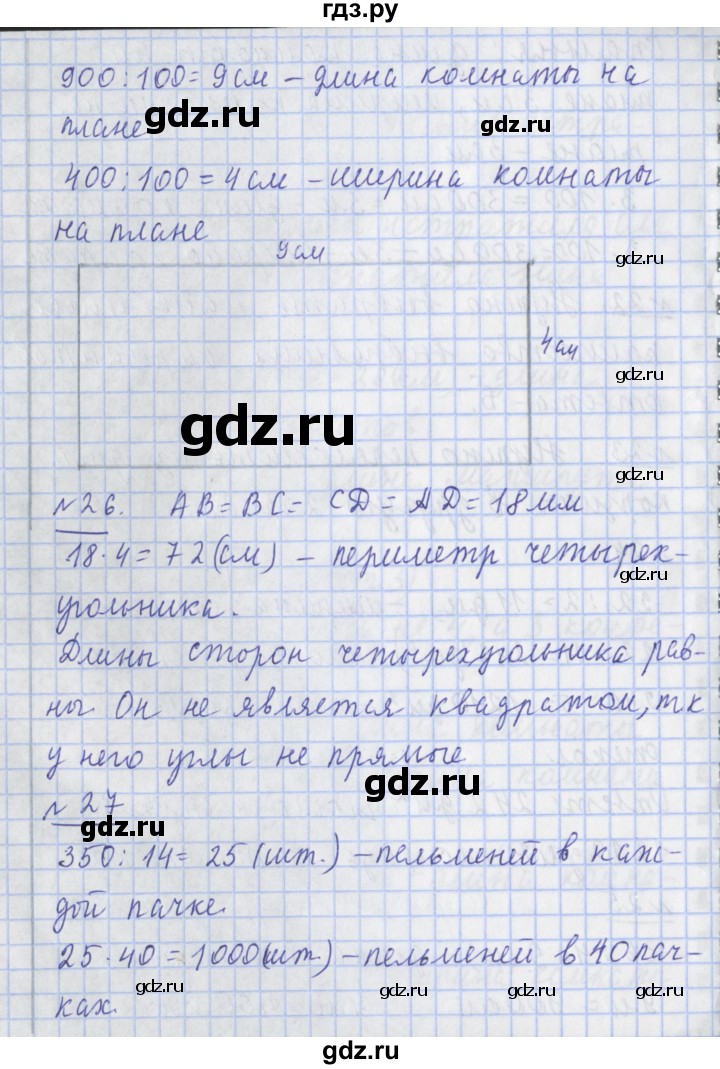 гдз.ру
900:100=9см – длина комнаты на
плане
gdz.ru
gdz.ru
400:100=4см – ширина комнаты
на плане
9см
gdz.ru
4см
gdz.ru
gdz.ru
№26. AB=BC= CD=AD=18мм
18·4=72(см) – периметр четырех-
gdz.ru
угольника.
Длины сторон четырехугольника рав-
ны. Он не является квадратом, т к
у него углы не прямые
gdz.ru
№27
350:14=25(шт.) – пельменей в каж-
дой пачке.
25·40=1000(шт) – пельменей в 40 пач-
ках.
gdz.ru
gdz.ru
gdz.ru
gdz.ru
gdz.ru